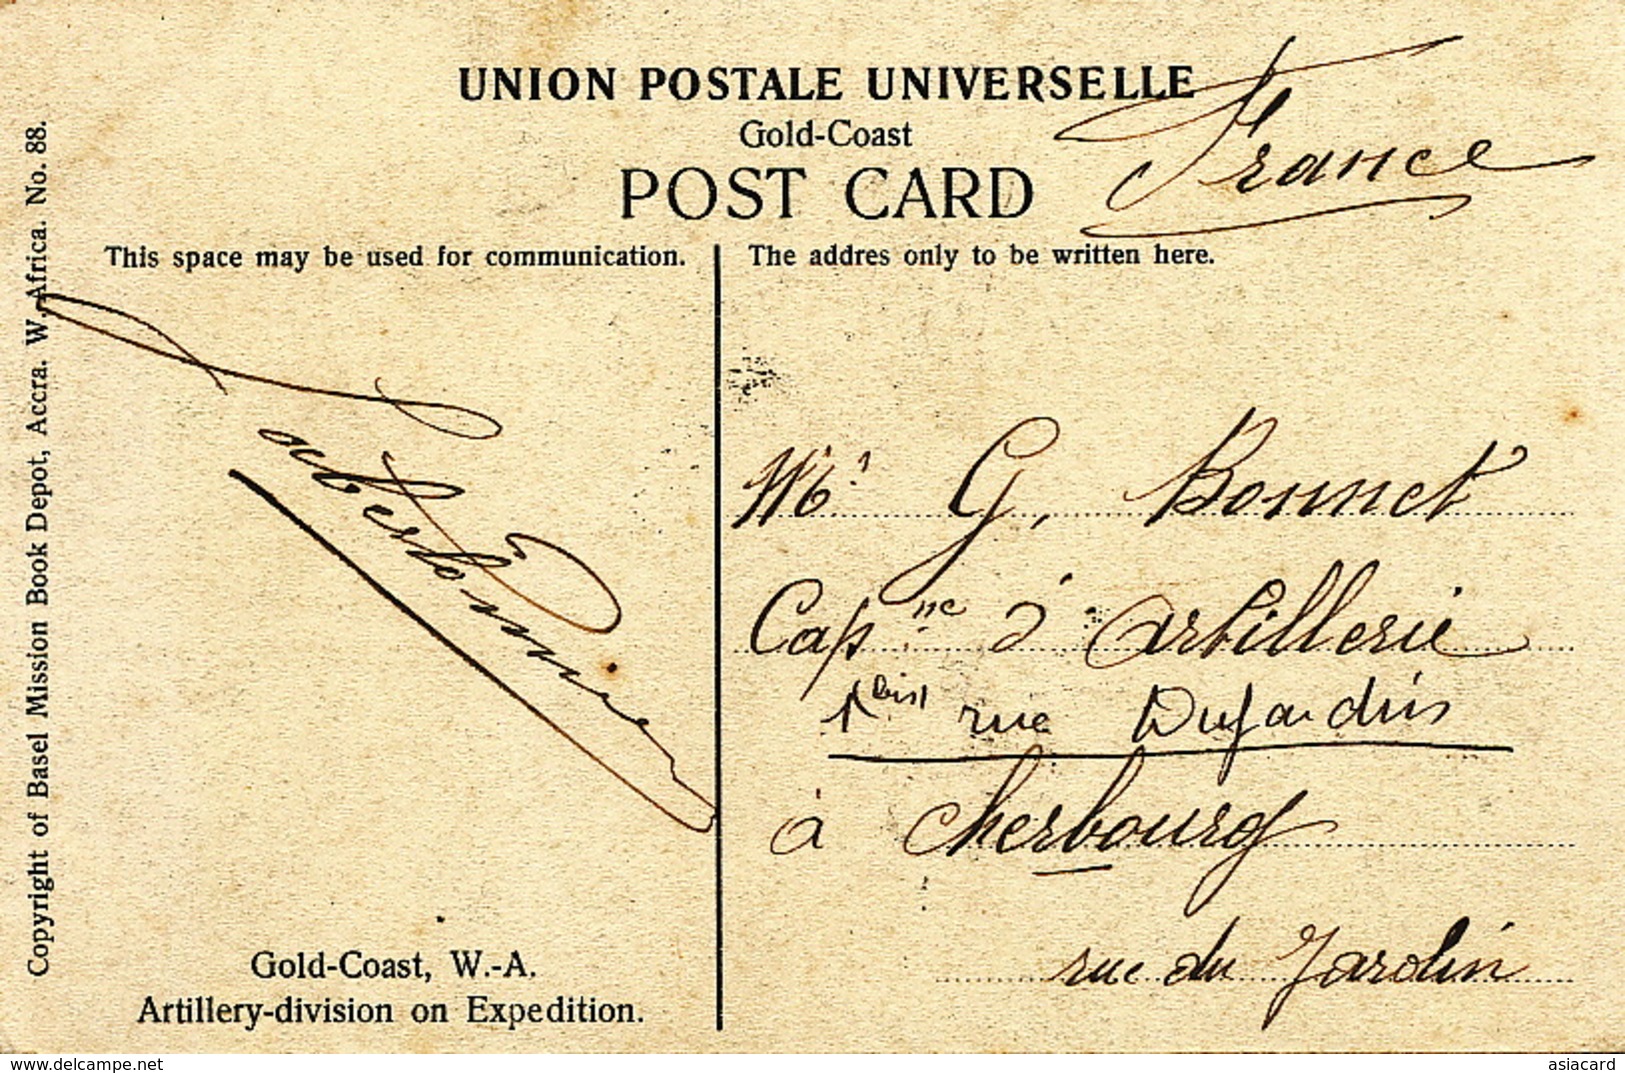 UNION POSTALE UNIVERSELLE
Gold-Coast
POST CARD
France
This space may be used for communication.
The addres only to be written here.
Copyright of Basel Mission Book Depot, Accra. W. Africa. No. 88.
Mr G. Bonnet
Capne d'artillerie
1 bis rue Dujardin
à Cherbourg
rue du Jardin
Gold-Coast, W.-A.
Artillery-division on Expedition.
delcampe.net
asiacard